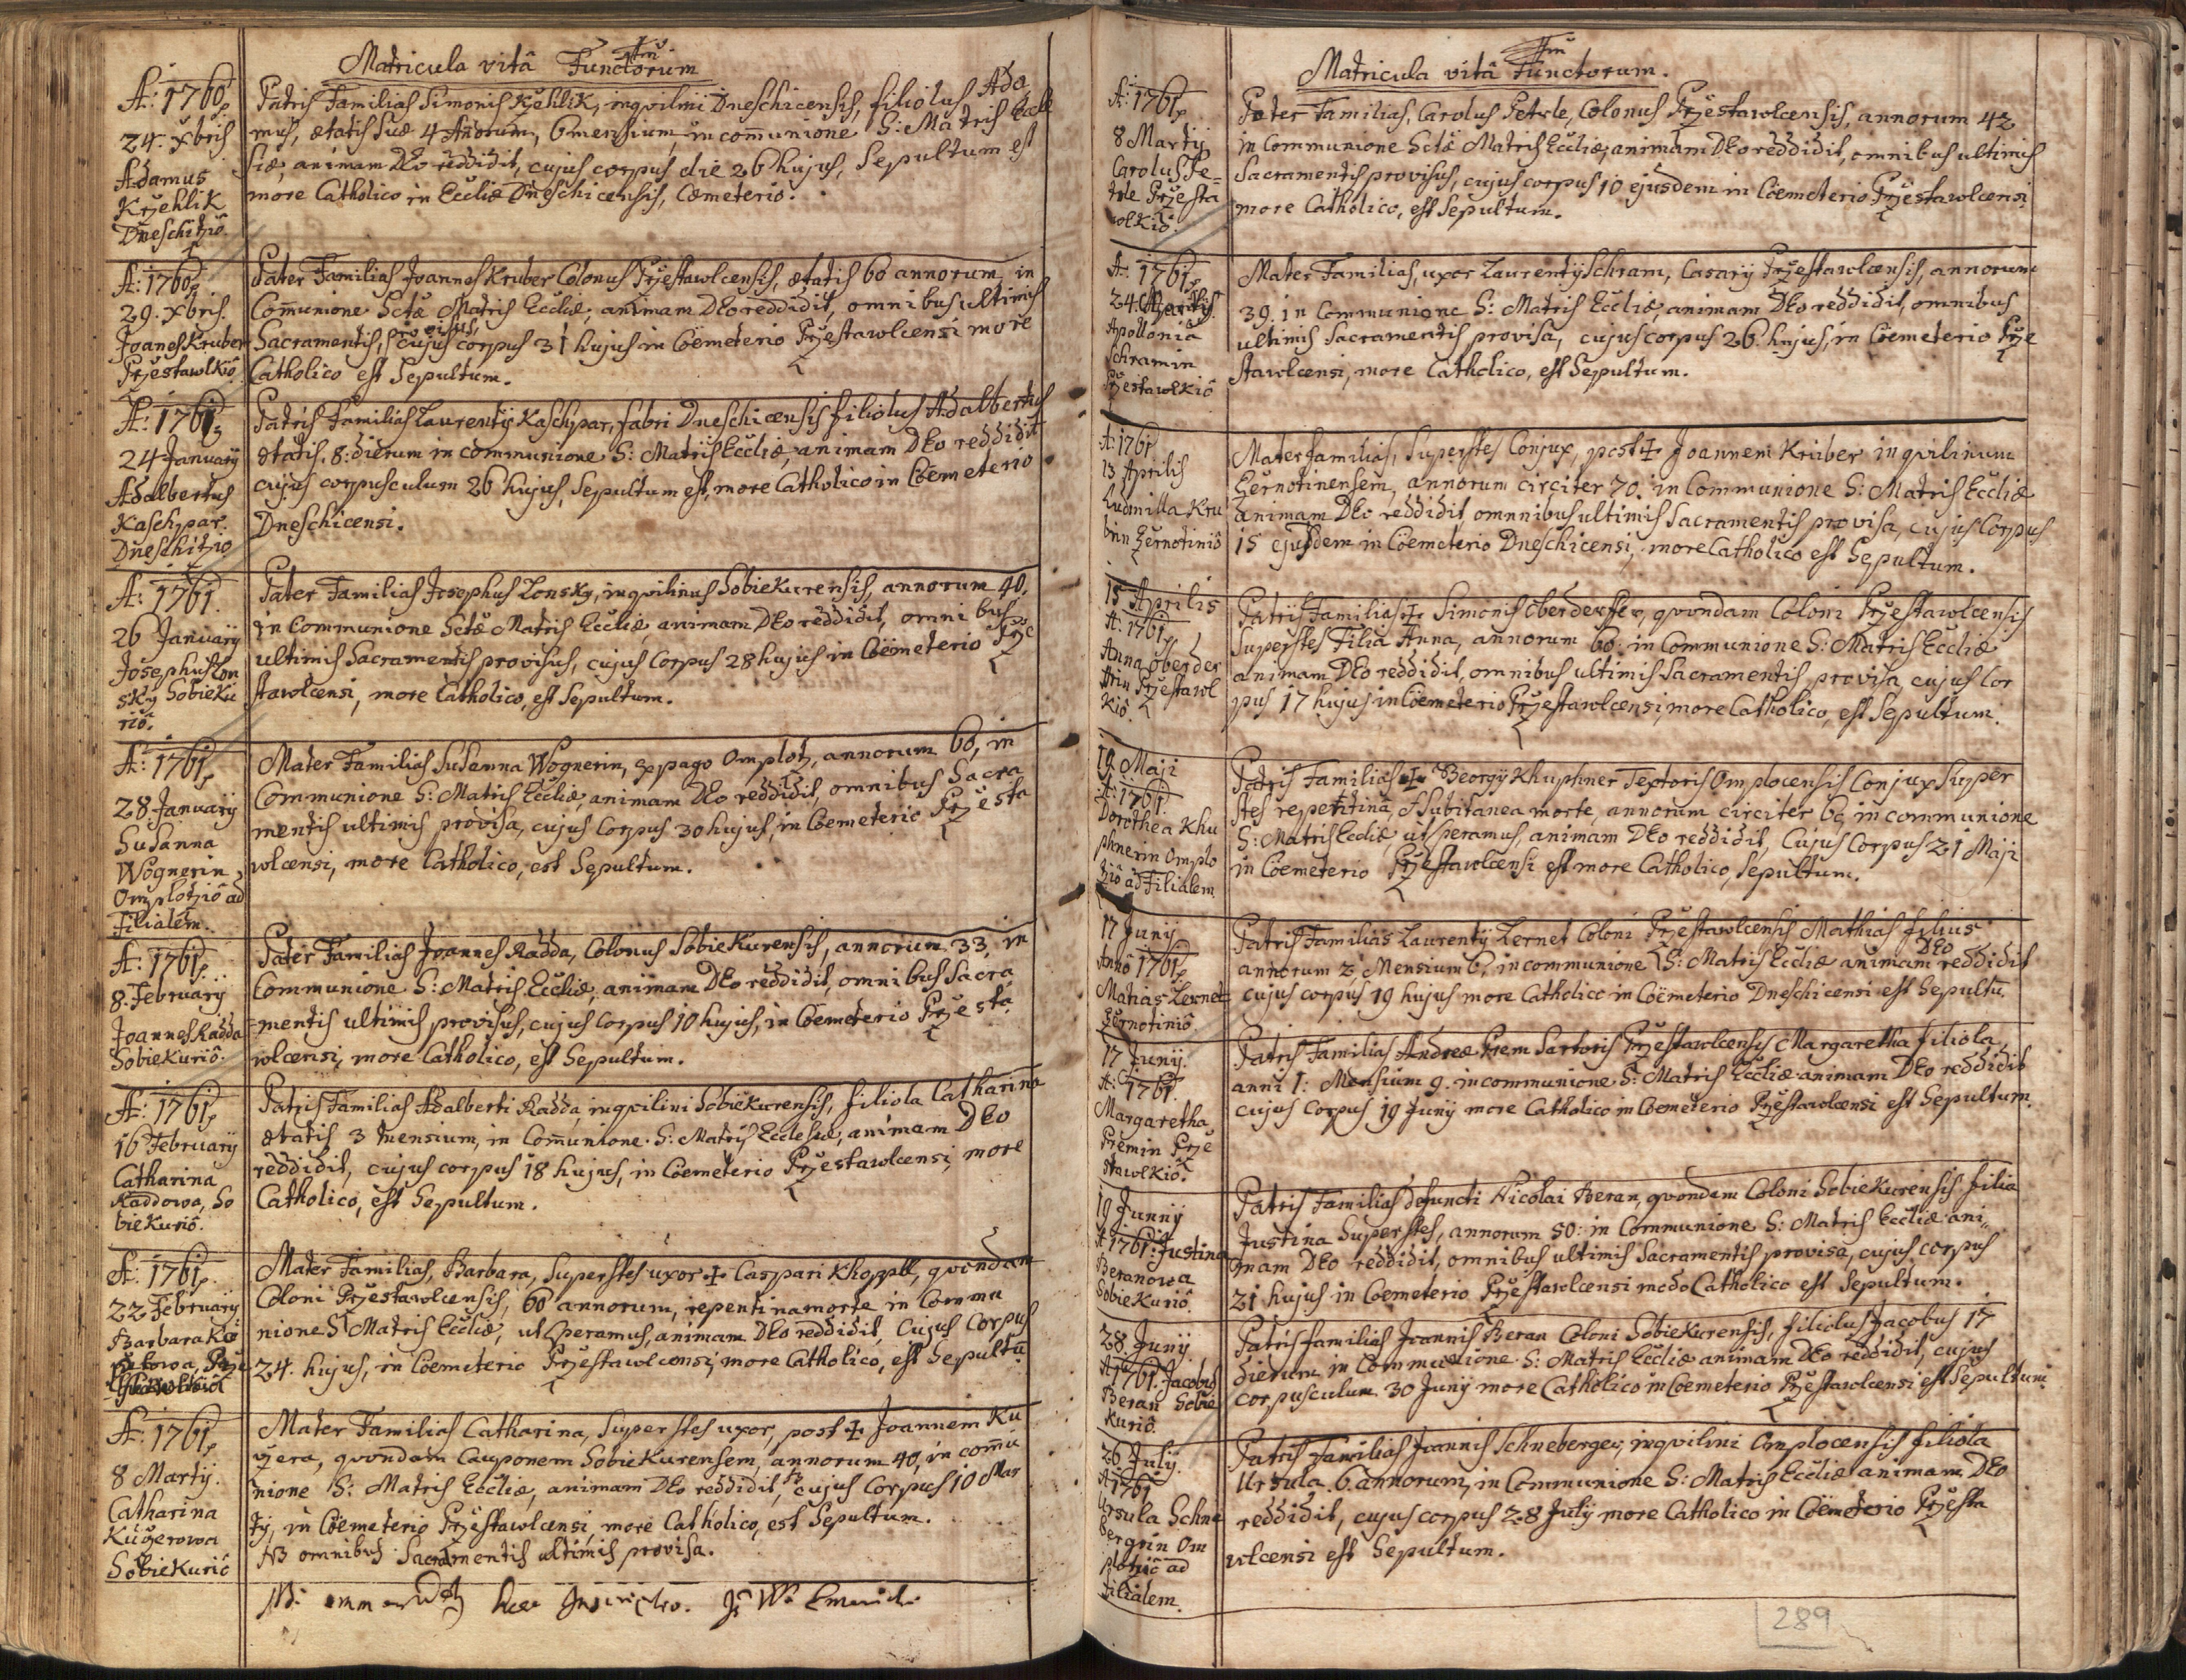 Matricula vitâ Functorum
A: 1760
24. Xbris
Adamus
Krzehlik
Dneschitziô.
Patris Familias Simonis Krzehlik, inqvilini Dneschicensis, filiolus Ada,
mus, ætatis suæ 4 Anorum, 6 mensium, in comunione S: Matris Eccle
siæ, animam Deo reddidit, cujus corpus die 26 hujus, Sepultum est
more Catholico in Eccliæ Dneschicensis, Cæmeterio.
A: 1760
29. Xbris.
Joanes Kruber
Przestawlkiô.
Pater Familias Joannes Kruber Colonus Przestawlcensis, ætatis 60 annorum in
Comunione Sctæ Matris Eccliæ, animam Deo reddidit, omnibus ultimis
Sacramentis, provisus, cujus corpus 31 hujus in Cöemeterio Przestawlcensi more
Catholico est Sepultum.
A: 1761
24 January
Adalbertus
Kaschpar.
Dneschitzio
Patris Familias Laurenty Kaschpar, fabri Dneschicensis filiolus Adalbertus
ætatis. 8: dierum in communione S: Matris Eccliæ, animam Deo reddidit
cujus corpusculum 26 hujus, Sepultum est, more Catholico in Cöemeterio
Dneschicensi.
A: 1761.
26 January
Josephus Lon
sky Sobieku
riô.
Pater Familias Josephus Lonsky, inqvilinus Sobiekurensis, annorum 40,
in Communione Sctæ Matris Eccliæ, animam Deo reddidit, omnibus
ultimis Sacramentis provisus, cujus Corpus 28 hujus in Cöemeterio Prze
stawlcensi, more Catholico, est Sepultum.
A: 1761
28. January
Susanna
Wognerin,
Omplotziô ad
Filialem.
Mater Familias Susanna Wognerin, ex pago Omplotz, annorum 60, in
Communione S: Matris Eccliæ, animam Deo reddidit, omnibus Sacra
mentis ultimis provisa, cujus Corpus 30 hujus, in Coemeterio Przesta
wlcensi, more Catholico, est Sepultum.
A: 1761.
8. February
Joannes Kadda
Sobiekuriô.
Pater Familias Joannes Kadda, Colonus Sobiekurensis, annorum 33, in
Communione S: Matris Eccliæ, animam Deo reddidit, omnibus Sacra
mentis ultimis provisus, cujus Corpus 10 hujus, in Coemeterio Przesta
wlcensi, more Catholico, est Sepultum.
A: 1761
16 February
Catharina
Kaddowa, So
biekuriô.
Patris Familias Adalberti Kadda, inqvilini Sobiekurensis, filiola Catharina
ætatis 3 mensium, in Comunione. S: Matris Ecclesiæ, animam Deo
reddidit, cujus corpus 18 hujus, in Cöemeterio Przestawlcensi, more
Catholico, est Sepultum.
A: 1761.
22 February
Barbara
Mater Familias, Barbara, Superstes uxor + Caspari Khoppll, qvondam
Coloni Przestawlcensis, 60 annorum, repentina morte in Commu
nione S: Matris Eccliæ, ut speramus, animam Deo reddidit, Cujus Corpus
24. hujus, in Coemeterio Przestawlcensi, more Catholico, est Sepultū
A: 1761
8 Marty.
Catharina
Kuczerowa
Sobiekuriô
Mater Familias Catharina, Superstes uxor, post + Joannem Ku
czera, qvondam Cauponem Sobiekurensem, annorum 40, in comu
nione S: Matris Eccliæ, animam Deo reddidit, cujus Corpus 10 Mar
ty, in Cöemeterio Przestawlcensi, more Catholico, est Sepultum.
NB omnibus Sacramentis ultimis provisa.
Matricula vitâ Functorum.
A: 1761
8 Marty
Carolus Pe-
trle Przesta
wlkiô.
Pater Familias, Carolus Petrle, Colonus Przestawlcensis, annorum 42
in Communione Sctæ Matris Eccliæ, animam Deo reddidit, omnibus ultimis
Sacramentis provisus, cujus corpus 10 ejusdem in Cöemeterio Przestawlcensi
more Catholico, est Sepultum.
A: 1761
24. Marty
Apollonia
Schramin
Przestawlkiô
Mater Familias, uxor Laurenty Schram, Casary Przestawlcensis, annorum
39. in Communione S: Matris Eccliæ, animam Deo reddidit, omnibus
ultimis Sacramentis provisa, cujus corpus 26. hujus, in Cöemeterio Prze
stawlcensi, more Catholico, est Sepultum.
A: 1761
13 Aprilis
Ludmilla Kru
brin Zernotiniô
Mater familias, Superstes Conjux, post + Joannem Kruber inqvilinum
Zernotinensem, annorum circiter 70. in Communione S: Matris Eccliæ
animam Deo reddidit, omnnibus ultimis Sacramentis provisa, cujus Corpus
15 ejusdem in Cöemeterio Dneschicensi, more Catholico est Sepultum.
15 Aprilis
A: 1761
Anna Oberder
ffrin Przestawl
kiô.
Patris Familias + Simonis Oberderffer, qvondam Coloni Przestawlcensis
Superstes Filia Anna, annorum 60. in Communione S: Matris Eccliæ
animam Deo reddidit, omnibus ultimis Sacramentis provisa, cujus Cor
pus 17 hujus in Cöemeterio Przestawlcensi, more Catholico, est Sepultum.
19 Maji
A: 1761.
Dorothea Khu
phnerin Omplo
tziô ad Filialem
Patris Familias + Georgy Khuphner Textoris Omplocensis Conjux Super
stes repentina, & subitanea morte, annorum circiter 60, in communione
S: Matris Eccliæ, ut speramus, animam Deo reddidit, Cujus Corpus 21 Maji
in Coemeterio Przestawlcensi est more Catholico, Sepultum.
17 Juny
Anno 1761
Matias Zernet
Zernotiniô.
Patris Familias Laurenty Zernet Coloni Przestawlcensis Mathias filius
annorum 2, Mensium 6, in communione S: Matris Eccliæ animam Deo reddidit
cujus corpus 19 hujus more Catholico in Cöemeterio Dneschicensi est Sepultū.
17 Juny.
A: 1761.
Margaretha
Premin Prze
stawlkiô.
Patris Familias Andreæ Prem Sartoris Przestawlcensis Margaretha filiola,
anni 1: Mensium 9. in communione S: Matris Eccliæ animam Deo reddidit
cujus Corpus 19 Juny more Catholico in Coemeterio Przestawlcensi est Sepultum.
19 Junny
A 1761. Justina
Beranowa
Sobiekuriô.
Patris Familias defuncti Nicolai Beran, qvondam Coloni Sobiekurensis filia
Justina Superstes, annorum 50: in Communione S: Matris Eccliæ ani-
mam Deo reddidit, omnibus ultimis Sacramentis provisa, cujus corpus
21 hujus in Coemeterio Przestawlcensi modo Catholico est Sepultum.
28. Juny.
A 1761. Jacobus
Beran Sobie
kuriô.
Patris familias Joannis Beran Coloni Sobiekurensis, filiolus Jacobus 17
dierum in Communione. S: Matris Eccliæ animam Deo reddidit, cujus
corpusculum 30 Juny more Catholico in Coemeterio Przestawlcensi est Sepultum.
26 July.
A 1761
Ursula Schne
bergrin Om
plotziô ad
Filialem.
Patris Familias Joannis Schneberger, inqvilini Omplocensis filiola
Ursula. 6. annorum, in Communione S: Matris Eccliæ animam Deo
reddidit, cujus corpus 28 July more Catholico in Cöemeterio Przesta
wlcensi est Sepultum.
289